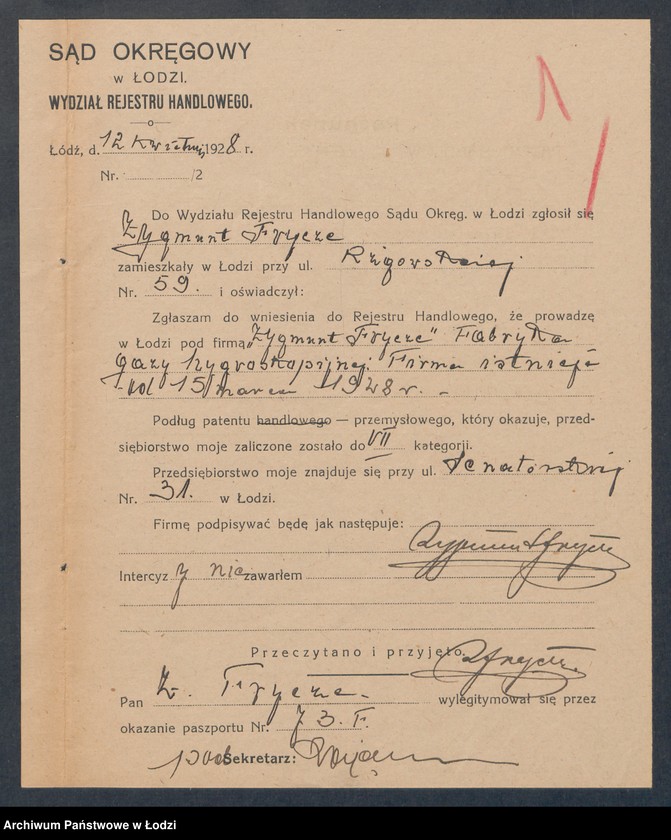 SĄD OKRĘGOWY
w ŁODZI.
WYDZIAŁ REJESTRU HANDLOWEGO.
Łódź, d. 12 kwietnia 1928 r.
Nr. /2
1
Do Wydziału Rejestru Handlowego Sądu Okręg. w Łodzi zgłosił się
Zygmunt Frycze
zamieszkały w Łodzi przy ul. Rzgowskiej
Nr. 59. i oświadczył:
Zgłaszam do wniesienia do Rejestru Handlowego, że prowadzę
w Łodzi pod firmą „Zygmunt Frycze" Fabryka
gazy hygroskopijnej. Firma istnieje
od 15 marca 1928 r. –
Podług patentu handlowego — przemysłowego, który okazuje, przed-
siębiorstwo moje zaliczone zostało do VII kategorji.
Przedsiębiorstwo moje znajduje się przy ul. Senatorskiej
Nr. 31. w Łodzi.
Firmę podpisywać będę jak następuje:
Zygmunt Frycze
Intercyzy nie zawarłem
Przeczytano i przyjęto. ZFrycze
Pan Z. Frycze. wylegitymował się przez
okazanie paszportu Nr. 73. F.
pod Sekretarz:
Archiwum Państwowe w Łodzi